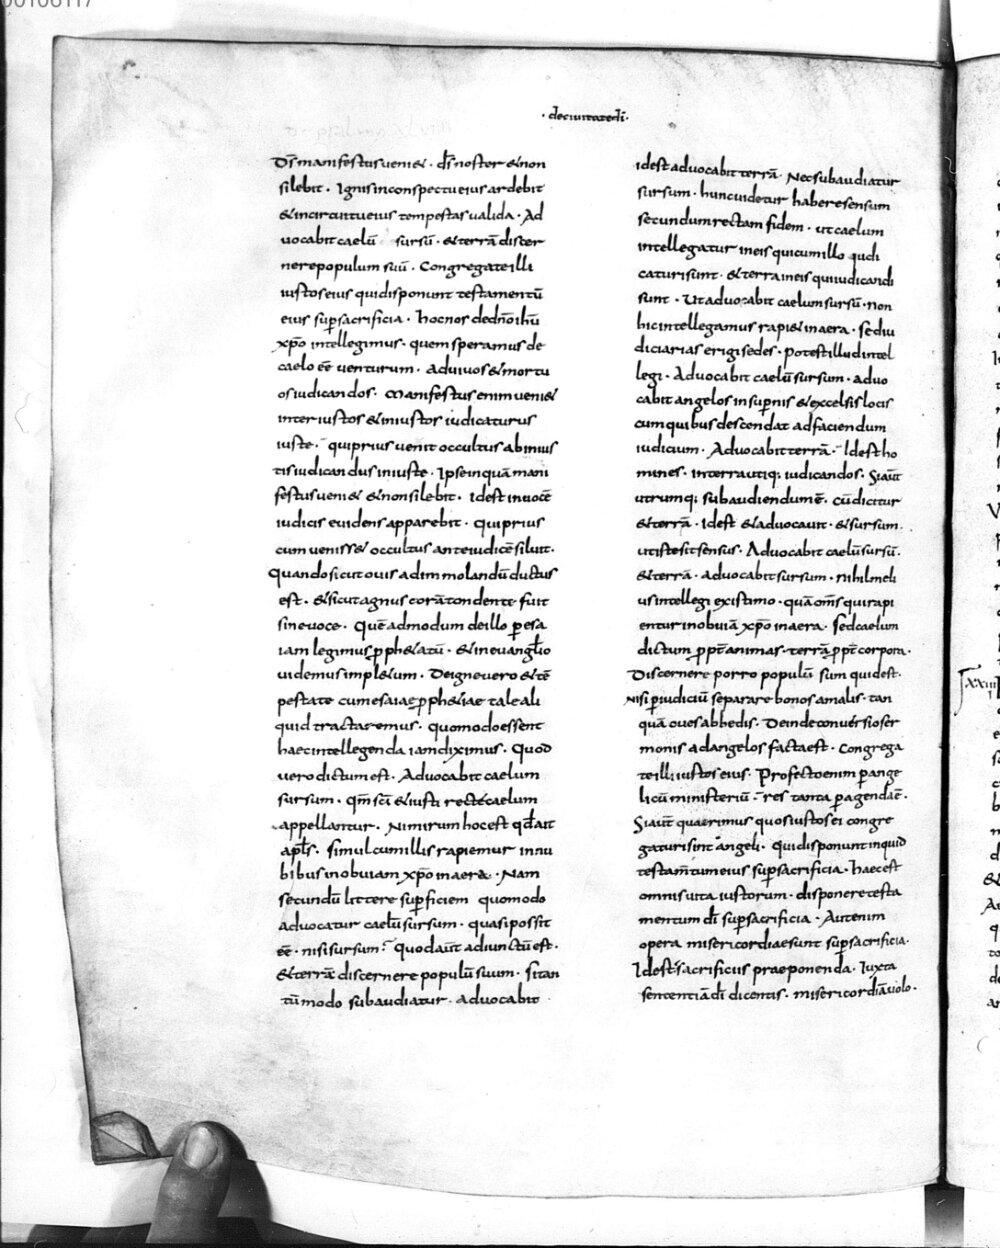 · deciuitatedī ·
Dс̄ manifestus ueniet · dс̄ noster & non
silebit · Ignis inconspectu eius ardebit
& incircuitu eius tempestas ualida · Ad
uocabit caelū sursū · & terrā discer
nere populum suū · Congregate illi
iustos eius qui disponunt testamentū
eius sup sacrificia · hoc nos de dn̄o ihū
xp̄o intellegimus · quem speramus de
caelo eē uenturum · ad uiuos & mortu
os iudicandos · Manifestus enim ueni&
inter iustos & iniustos iudicaturus
iuste · qui prius uenit occultus ab inius
tis iudicandus iniuste · Ipse inquā mani
festus ueni& & non silebit · Idest in uoce
iudicis euidens apparebit · qui prius
cum ueniss& occultus ante iudicē siluit ·
Quando sicut ouis ad immolandū ductus
est · & sicut agnus corā tondente fuit
sine uoce · Quē admodum de illo p esa
iam legimus pph&atū · & in euangl̄io
uidemus impl&um · De igne uero & tē
pestate cum esaiae pph&iae tale ali
quid tractaremus · quomodo essent
haec intellegenda iam diximus · Quod
uero dictum est · Aduocabit caelum
sursum · qm̄ sc̄i & iusti recte caelum
appellantur · Nimirum hoc est qd ait
apl̄s · simul cum illis rapiemur in nu
bibus in obuiam xp̄o in aera · Nam
secundū littere supficiem quomodo
aduocatur caelū sursum · quasi possit
eē · nisi sursum · quod aūt adiunctū est ·
& terrā discernere populū suum · si tan
tū modo subaudiatur · aduocabit
idest aduocabit terrā · Nec subaudiatur
sursum · hunc uidetur habere sensum
secundum rectam fidem · ut caelum
intellegatur in eis qui cum illo iudi
caturi sunt · & terra in eis qui iudicandi
sunt · Ut aduocabit caelum sursū · non
hic intellegamus rapi& in aera · sed iu
diciarias erigi sedes · potest illud intel
legi · Aduocabit caelū sursum · aduo
cabit angelos in supnis & excelsis locis
cum quibus descendat ad faciendum
iudicium · Aduocabit terrā · Idest ho
mines · in terra utiq; iudicandos · Si aūt
utrumq; subaudiendum ē · cū dicitur
& terrā · Idest & aduocauit · & sursum ·
ut iste sit sensus · Aduocabit caelū sursū ·
& terrā · aduocabit sursum · nihil meli
us intellegi existimo · quā om̄s qui rapi
entur in obuiā xp̄o in aera · sed caelum
dictum ppt̄ animas · terrā ppt̄ corpora ·
Discernere porro populū suum quid est ·
Nisi p iudiciū separare bonos a malis · tan
quā oues ab hedis · Deinde conuersio ser
monis ad angelos facta est · Congrega
te illi iustos eius · Profecto enim p ange
licū ministeriū · res tanta pagenda ē ·
Si aūt quaerimus quos iustos ei congre
gaturi sint angeli · qui disponunt inquid
testam̄tum eius sup sacrificia · haec est
omnis uita iustorum · disponere testa
mentum dī sup sacrificia · Aut enim
opera misericordiae sunt sup sacrificia ·
Idest sacrificiis praeponenda · Iuxta
sententiā dī dicentis · misericordiā uolo ·